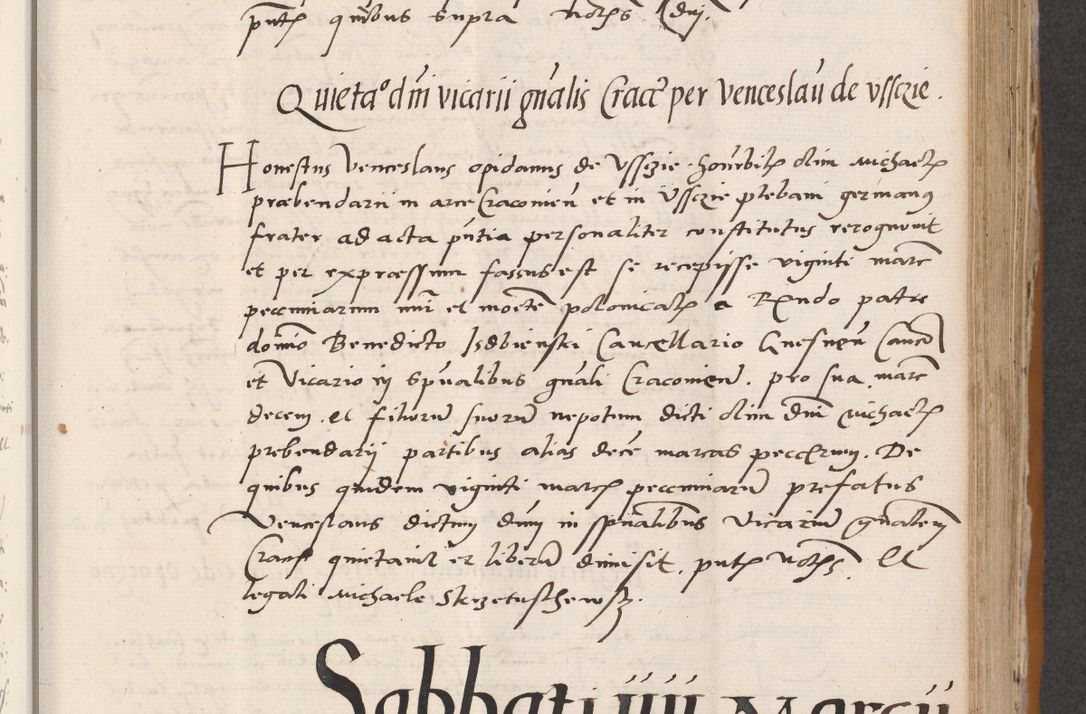 pñtib quibus supra notis Dni.
Quietaº dñi vicarii gñalis Cracc per Venceslaũ de Vssczie.
Honestus Venceslaus opidanus de Vssczie honõrbilis olim Michaelis
præbendarii in arce Cracouieñ et in Vssczie plebani germanus
frater ad acta pñtia personaliter constitutus recognouit
et per expressum fassus est se recepisse viginti marc
pecuniarum nũi et monete polonicalis a Rũdo patre
domino Benedicto Isdbienski Cancellario Gnesneñ Canco
et Vicario in spũalibus gñali Cracouieñ. pro sua marc
decem. et filiorũ suorũ nepotum dicti olim dñi Michaelis
prebendarii partibus alias decẽ marcas peccũrum. De
quibus quidem viginti marcis pecuniarũ prefatus
Venceslaus dictum dñm in spũalibus Vicariũ gñalem
Cracoñ quietauit et liberũ dimisit. pñtib notis. et
legali Michaele Skrzetuschewskj.
Sabbati iiii Marcii